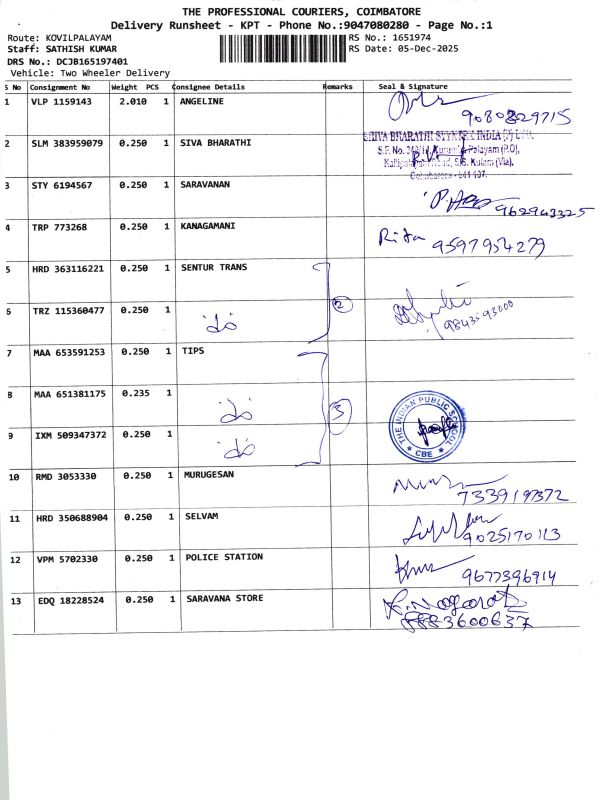 THE PROFESSIONAL COURIERS, COIMBATORE
Delivery Runsheet - KPT - Phone No.:9047080280 - Page No.:1
Route: KOVILPALAYAM
RS No.: 1651974
Staff: SATHISH KUMAR
RS Date: 05-Dec-2025
DRS No.: DCJB165197401
Vehicle: Two Wheeler Delivery
S No Consignment No Weight PCS Consignee Details Remarks Seal & Signature
1 VLP 1159143 2.010 1 ANGELINE
9080829715
2 SLM 383959079 0.250 1 SIVA BHARATHI
SHIVA BHARATHI INDIA (P) LTD.
S.F. No. Palayam (P.O),
S.S. Kulam (Via),
Coimbatore - 641 107.
3 STY 6194567 0.250 1 SARAVANAN
962943325
4 TRP 773268 0.250 1 KANAGAMANI Rita 9597954279
5 HRD 363116221 0.250 1 SENTUR TRANS
6 TRZ 115360477 0.250 1 do 2 9843593000
7 MAA 653591253 0.250 1 TIPS
8 MAA 651381175 0.235 1 do 3
THE INDIAN PUBLIC SCHOOL
CBE
9 IXM 509347372 0.250 1 do
10 RMD 3053330 0.250 1 MURUGESAN
7339197372
11 HRD 350688904 0.250 1 SELVAM
9025170113
12 VPM 5702330 0.250 1 POLICE STATION
9677396914
13 EDQ 18228524 0.250 1 SARAVANA STORE
8883600637